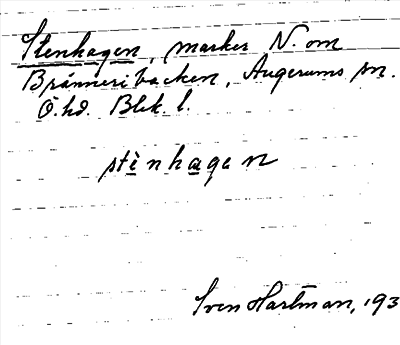 Stenhagen, marker N. om
Bränneribacken, Augerums sn.
Ö. hd. Blek. l.
stènhagen
Sven Hartman, 193